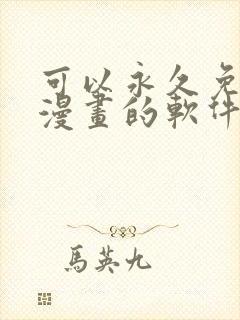 可以永久免
漫畫的軟件
馬英九